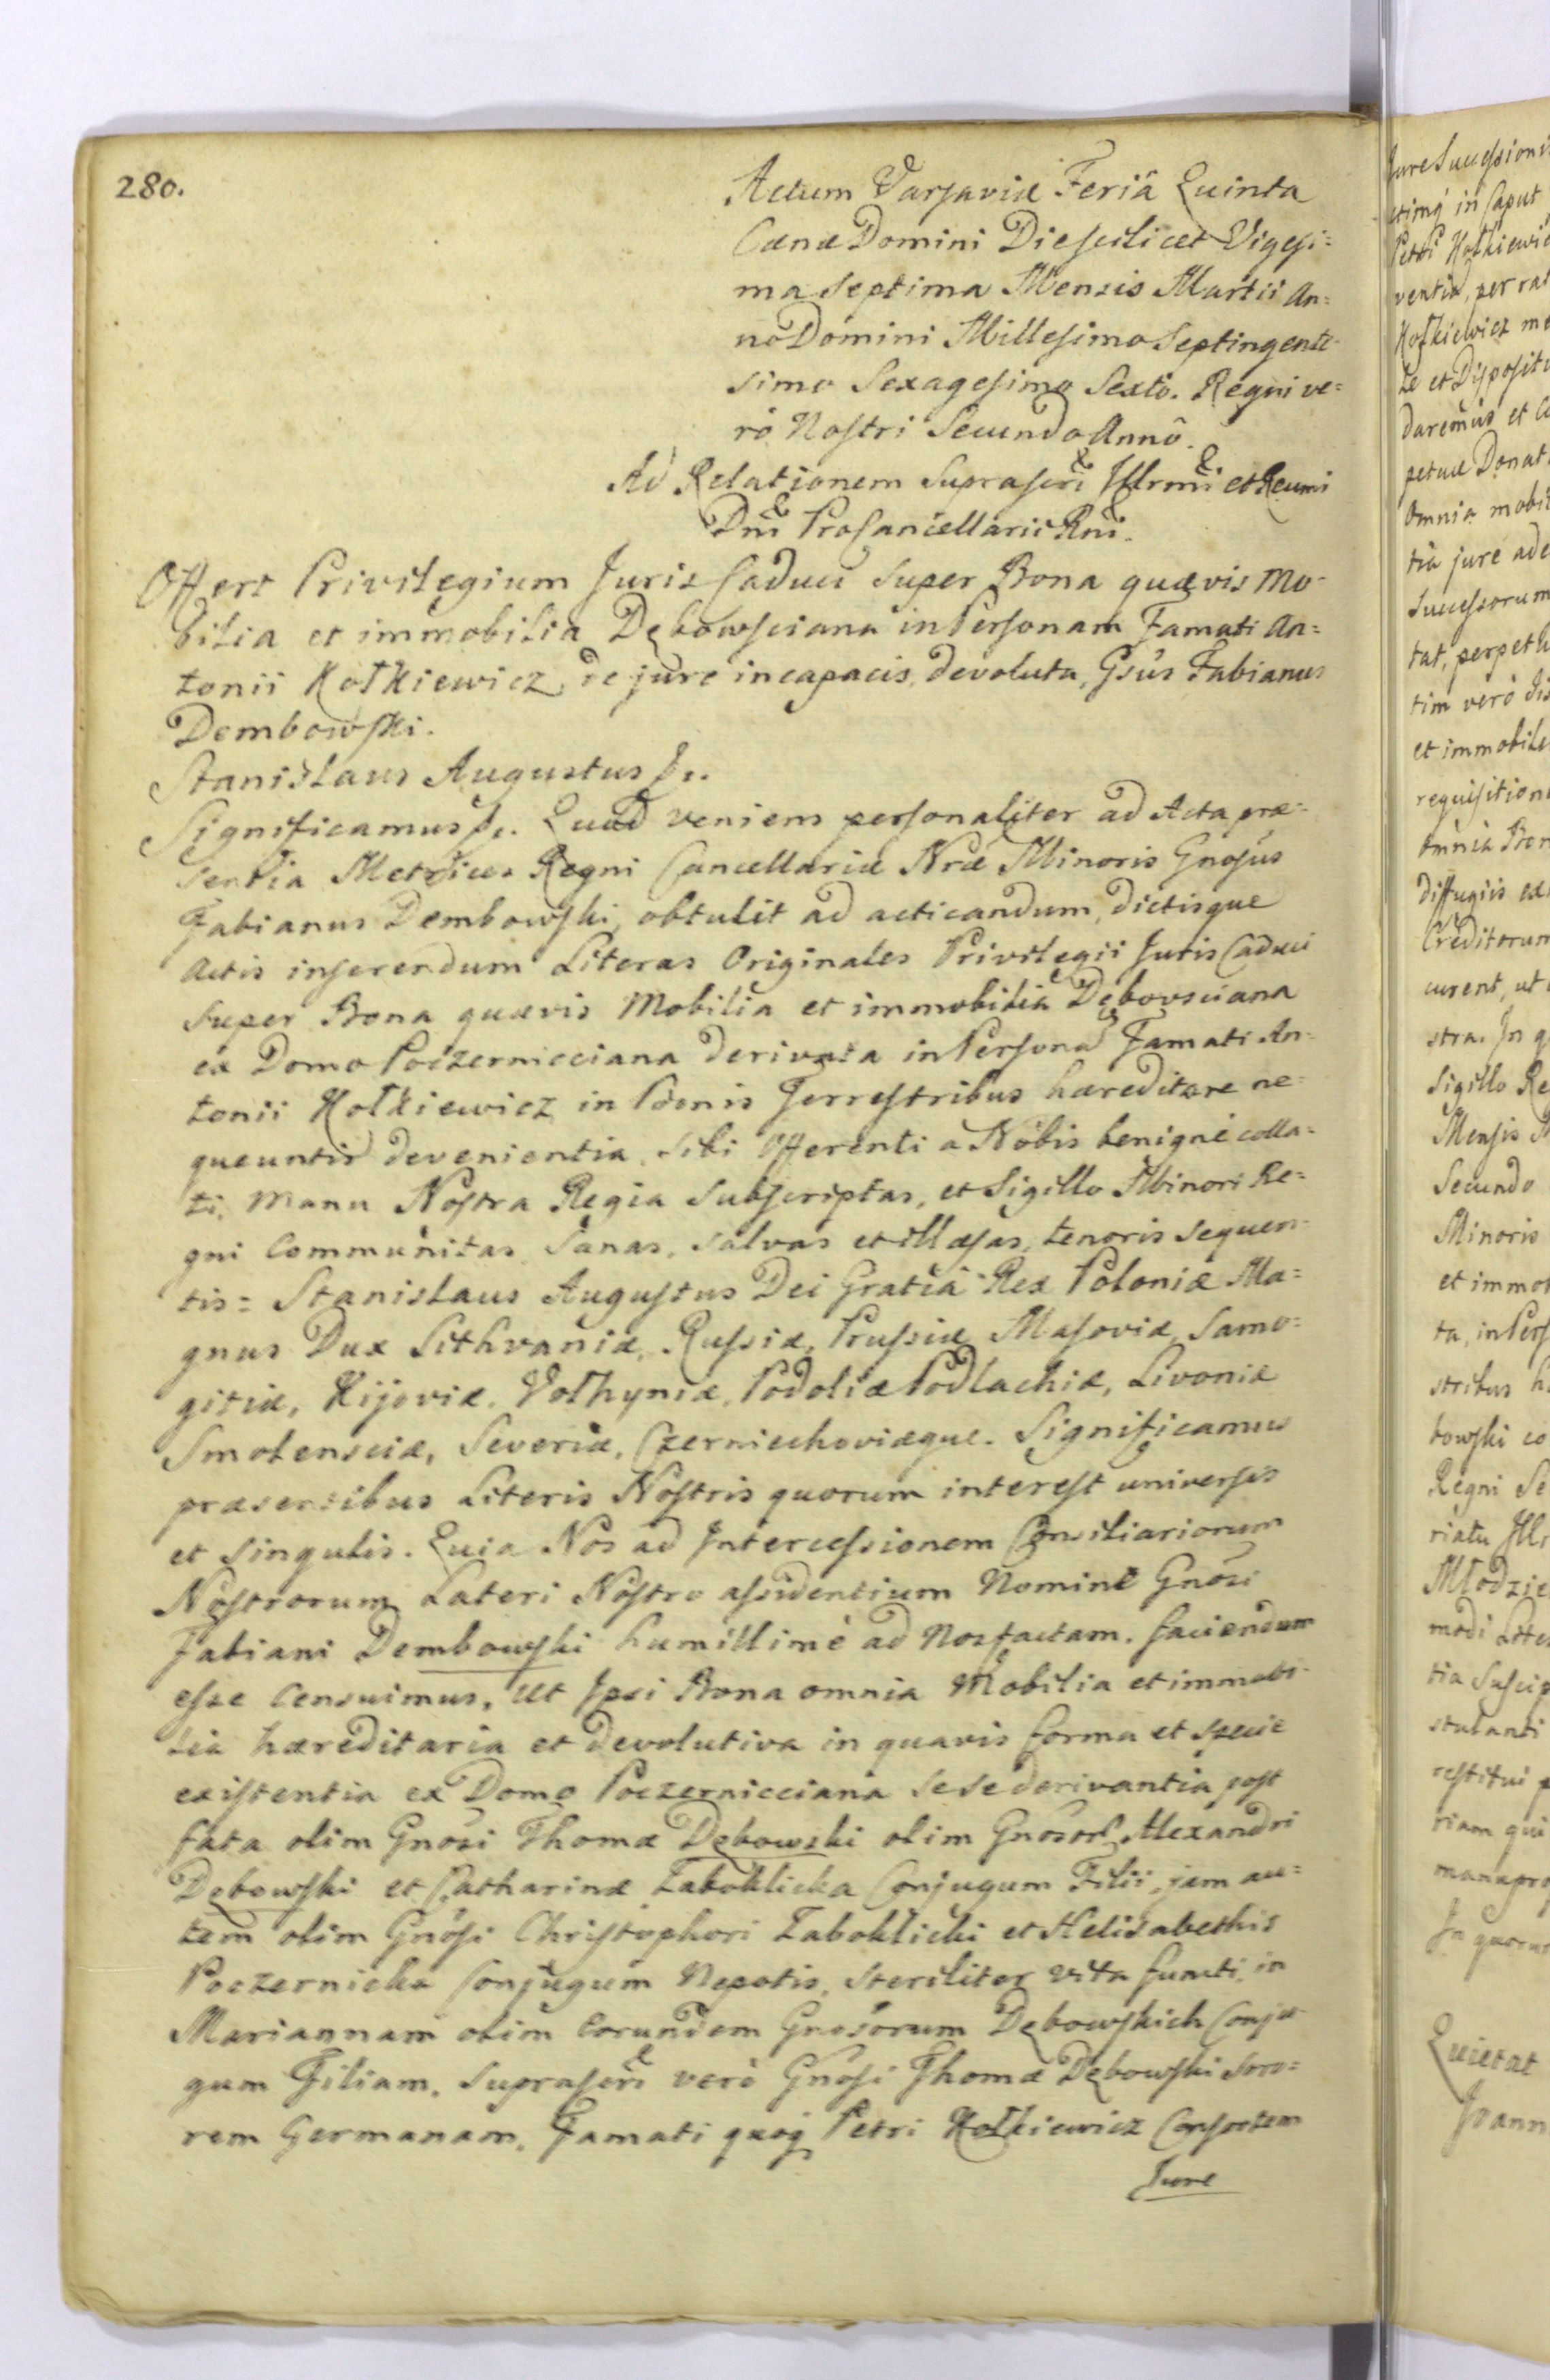 280.
Actum Varsaviæ Feriâ Quinta
Cænæ Domini Die scilicet Vigesi=
ma Septima Mensis Martii An=
no Domini Millesimo Septingente=
simo Sexagesimo Sexto. Regni ve=
rò Nostri Secundo Annô.
Ad Relationem Suprascri Illrmi et Reumi
Dni ProCancellarii Rni.
Offert Privilegium Juris Caduci Super Bona quævis Mo=
bilia et immobilia Dębowsciana in Personam Famati An=
tonii Kołkiewicz, de jure incapacis, devoluta, Gsus Fabianus
Dembowski.
Stanislaus Augustus &.
Significamus &. Quod veniens personaliter ad Acta præ=
sentia Metrices Regni Cancellariæ Nræ Minoris Gnosus
Fabianus Dembowski, obtulit ad acticandum, dictisque
Actis inserendum Literas Originales Privilegii Juris Caduci
Super Bona quævis Mobilia et immobilia Dębovsciana
ex Domo Poczernicciana derivata in Persona Famati An=
tonii Kołkiewicz in Bonis Terrestribus hæreditare ne=
queuntis devenientia, Sibi Offerenti a Nobis benignè colla=
ti, Manu Nostra Regia Subscriptas, et Sigillo Minori Re=
gni Communitas Sanas, salvas et illæsas, tenoris sequen=
tis = Stanislaus Augustus Dei Gratiâ Rex Poloniæ Ma=
gnus Dux Lithvaniæ, Russiæ, Prussiæ Masoviæ, Samo=
gitiæ, Kijoviæ, Volhyniæ, Podoliæ Podlachiæ, Livoniæ
Smolensciæ, Severiæ, Czerniechoviæque. Significamus
præsentibus Literis Nostris quorum interest universis
et singulis. Quia Nos ad Intercessionem Consiliariorum
Nostrorum Lateri Nostro assidentium Nomine Gnosi
Fabiani Dembowski humillimè ad Nos factam. faciendum
esse Censuimus, Ut Ipsi Bona omnia Mobilia et immobi=
lia hæreditaria et devolutiva in quavis forma et specie
existentia ex Domo Poczernicciana sese derivantia post
fata olim Gnosi Thomæ Dębowski olim Gnosor Alexandri
Dębowski et Catharinæ Zaboklicka Conjugum Filii, jam au=
tem olim Gnosi Christophori Zaboklicki et Helisabethis
Poczernicka Conjugum Nepotis, steriliter vita functi, in
Mariannam olim Eorundem Gnosorum Dębowskich Conju=
gum Filiam, Suprascri verò Gnosi Thomæ Dębowski Soro=
rem Germanam, Famati quoq Petri Kołkiewicz Consortem
Jure
Jure Successionis
in Caput
Petri Kołkiewic
ventia, per
Kołkiewicz
te et
daremus et
petuæ Donat
Omnia mobi
tia jure
Successorum
tat, perpet
tim verò
et immobile
requisition
Omnia Bon
diffugiis
Creditorum
curent, ut
stra. In
Sigillo Re
Mensis
Secundo
Minoris
et immo
ta, in Pers
stribus
bowski co
Regni Se
riatu
Młodzie
modi Liter
tia Suscip
stulanti
restitui
riam qui
In quorum
Quietat
Joann